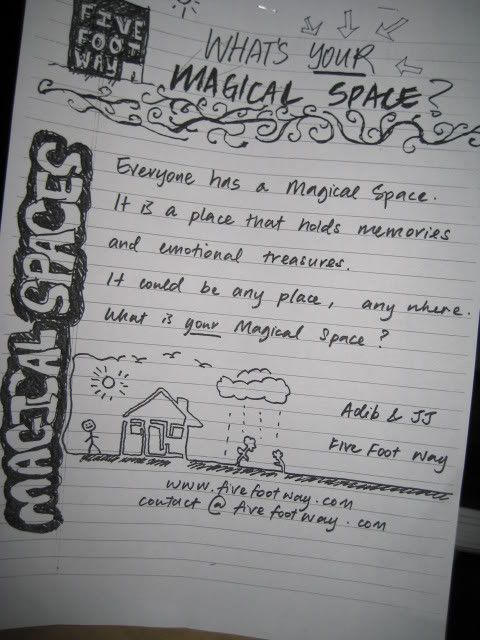 FIVE
FOOT
WAY
WHAT'S YOUR
MAGICAL SPACE?
MAGICAL SPACES
Everyone has a Magical Space.
It is a place that holds memories
and emotional treasures.
It could be any place, any where.
What is your Magical Space?
Adib & JJ
Five Foot Way
www.fivefootway.com
contact@fivefootway.com